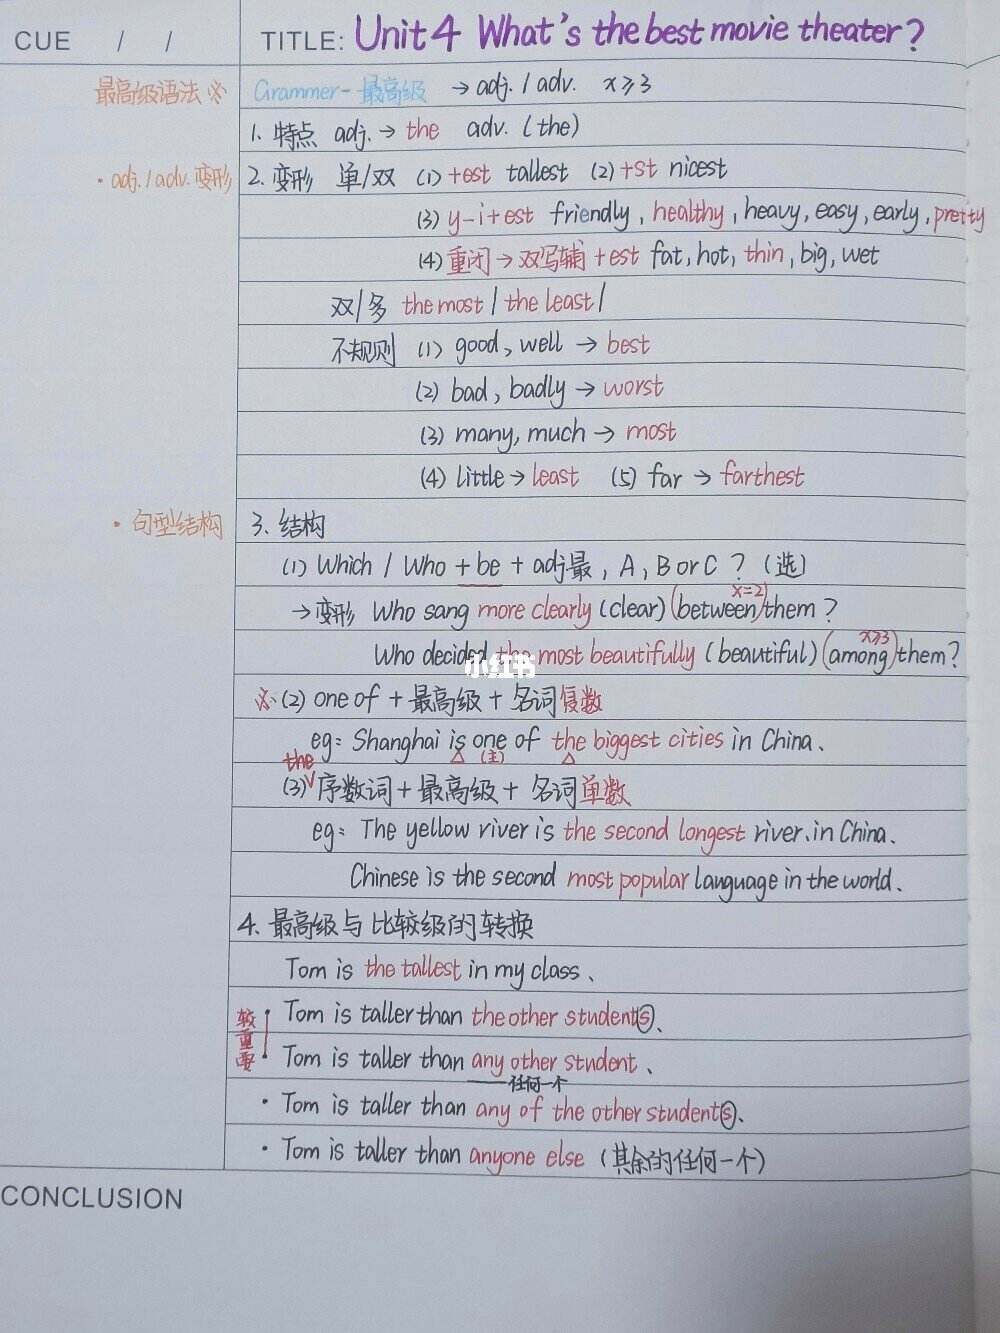 CUE / / TITLE: Unit 4 What's the best movie theater?
最高级语法 ※ Grammer - 最高级 → adj. / adv. x≥3
1. 特点 adj. → the adv. (the)
· adj. / adv. 变形 2. 变形 单/双 (1) +est tallest (2) +st nicest
(3) y-i+est friendly, healthy, heavy, easy, early, pretty
(4) 重闭 → 双写辅 +est fat, hot, thin, big, wet
双/多 the most / the least /
不规则 (1) good, well → best
(2) bad, badly → worst
(3) many, much → most
(4) little → least (5) far → farthest
· 句型结构 3. 结构
(1) Which / Who + be + adj最, A, B or C ? (选)
x=2
→ 变形 Who sang more clearly (clear) (between) them ?
x≥3
Who decided the most beautifully (beautiful) (among) them ?
小红书
※ (2) one of + 最高级 + 名词复数
eg: Shanghai is one of the biggest cities in China.
(主)
the
(3) 序数词 + 最高级 + 名词单数
eg: The yellow river is the second longest river.in China.
Chinese is the second most popular language in the world.
4. 最高级与比较级的转换
Tom is the tallest in my class.
较重要
· Tom is taller than the other students.
· Tom is taller than any other student.
任何一个
· Tom is taller than any of the other students.
· Tom is taller than anyone else (其余的任何一个)
CONCLUSION